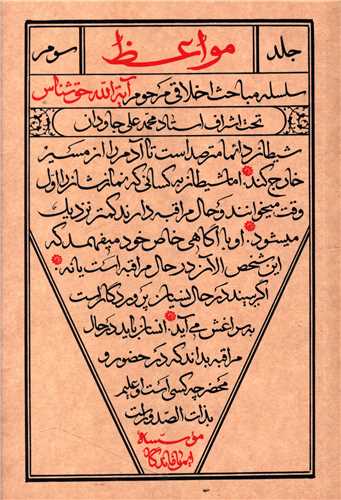 جلد مواعظ سوم
سلسله مباحث اخلاقی مرحوم آیة الله حق شناس
تحت اشراف استاد محمد علی جاودان
شیطان دائما مترصد است تا آدم را از مسیر
خارج کند. اما شیطان به کسانی که نمازشان را اول
وقت میخوانند و حال مراقبه دارند کمتر نزدیک
میشود. او با آگاهی خاص خود میفهمد که
این شخص الآن در حال مراقبه است یا نه.
اگر ببیند در حال نسیان پروردگار است
به سراغش می آید. انسان باید در حال
مراقبه بداند که در حضور و
محضر چه کسی است او علیم
بذات الصدور است
موسسه
ایمان ماندگار